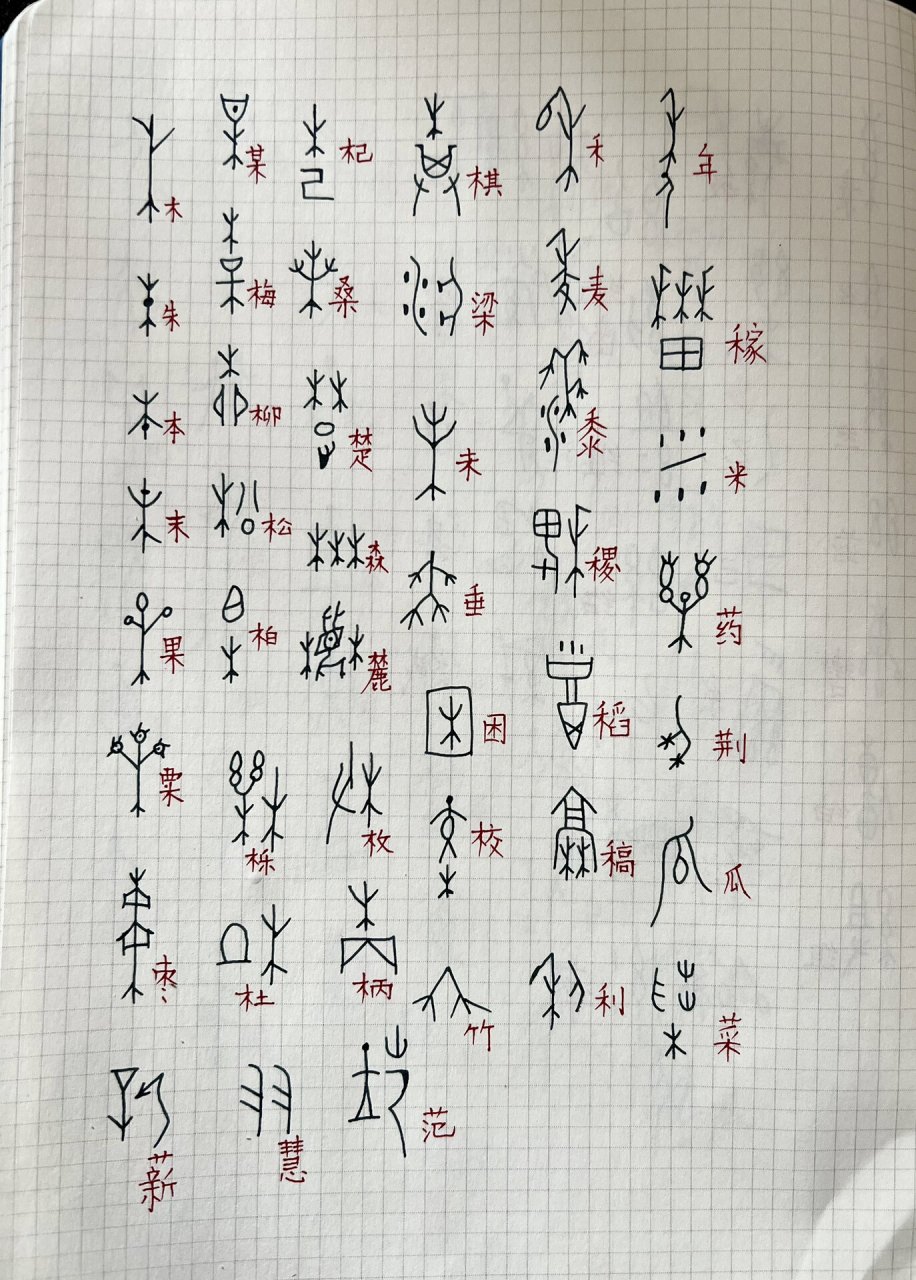 木
某
杞
棋
禾
年
朱
梅
桑
梁
麦
稼
本
柳
楚
耒
黍
米
末
松
森
垂
稷
药
果
柏
麓
困
稻
荆
栗
栎
枚
校
稿
瓜
枣
杜
柄
竹
利
菜
薪
慧
范